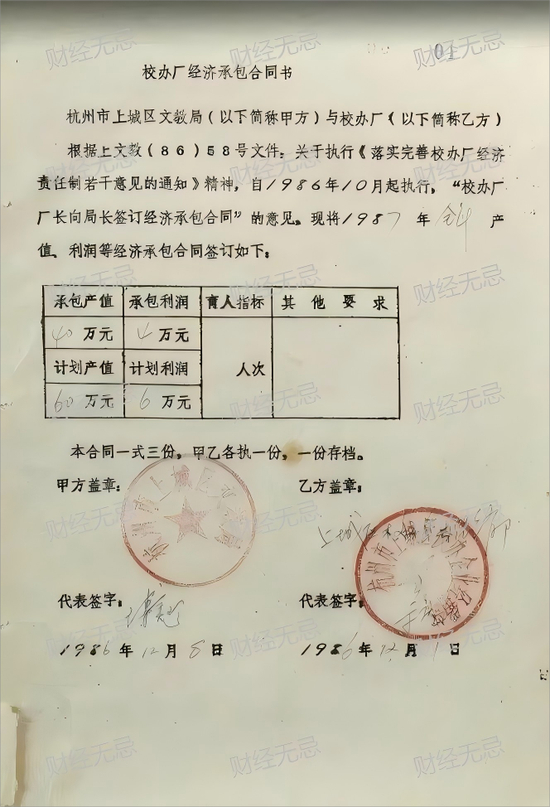 01
校办厂经济承包合同书
杭州市上城区文教局(以下简称甲方)与校办厂(以下简称乙方)
根据上文教(86)58号文件:关于执行《落实完善校办厂经济
责任制若干意见的通知》精神,自1986年10月起执行,“校办厂
厂长向局长签订经济承包合同”的意见。现将1987年全年产
值、利润等经济承包合同签订如下:
承包产值 承包利润 育人指标 其他要求
40万元 4万元
计划产值 计划利润 人次
60万元 6万元
本合同一式三份,甲乙各执一份,一份存档。
甲方盖章: 乙方盖章:
杭州市上城区文教局
杭州市上城区校办企业经销部
代表签字: 代表签字:
1986年12月8日 1986年12月1日
财经无忌